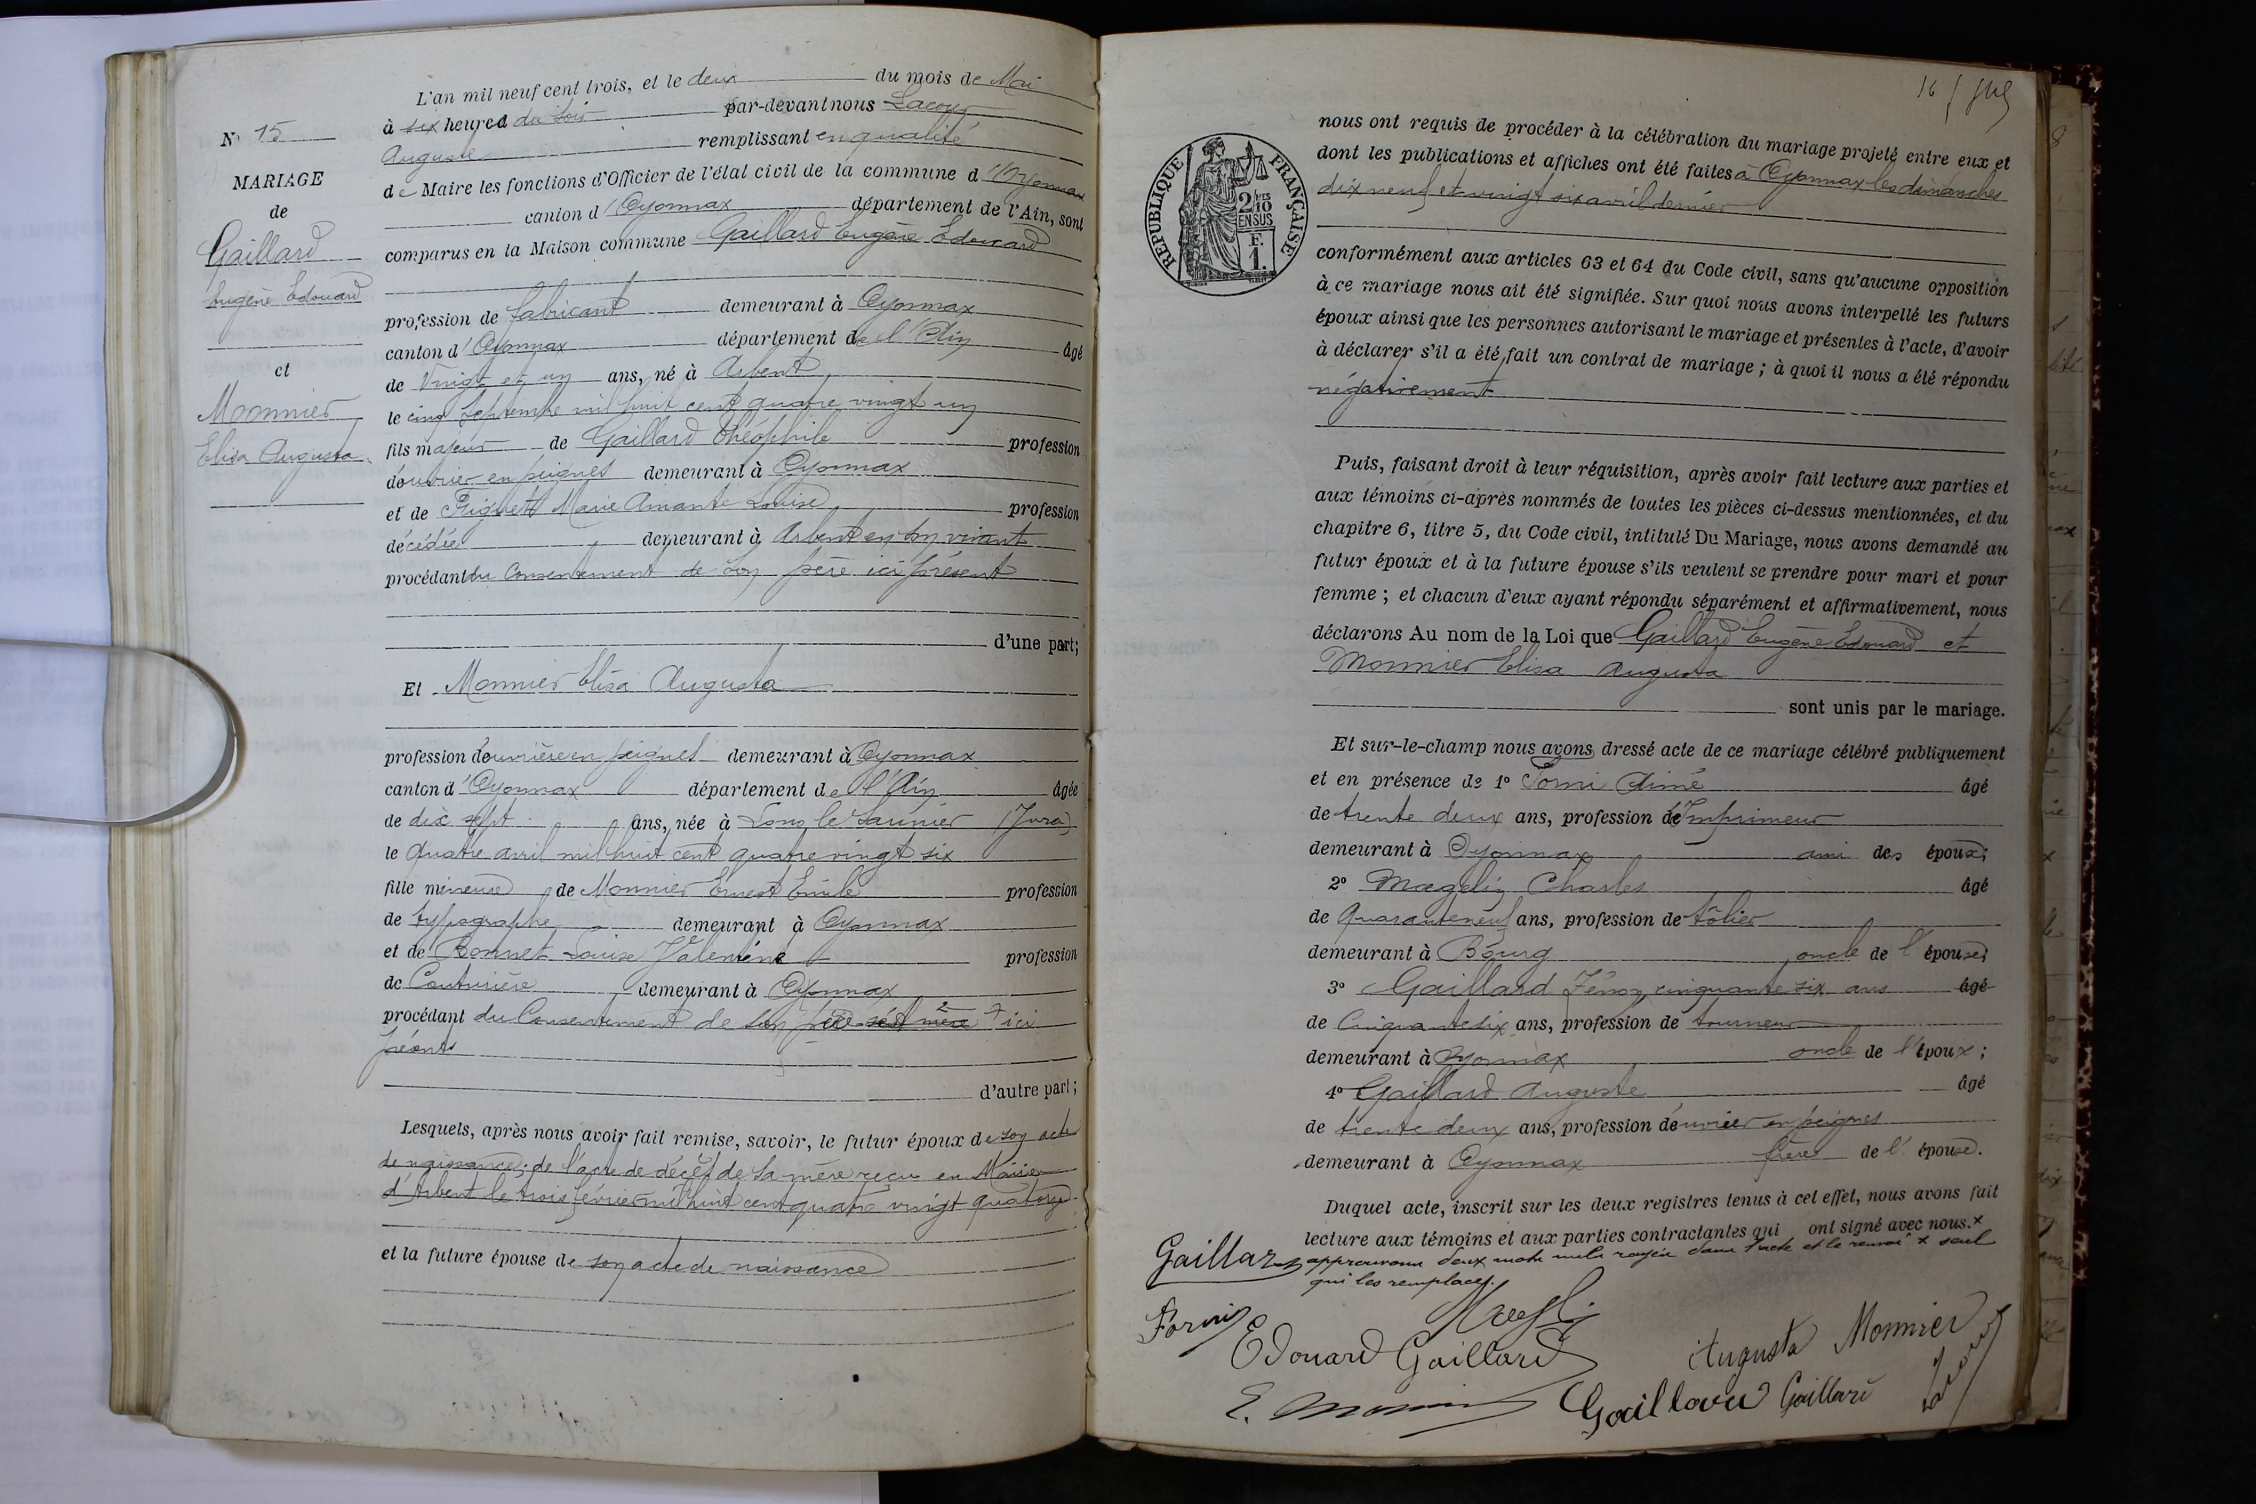 N° 15
MARIAGE
de
Gaillard
Eugène Edouard
et
Monnier
Elisa Augusta
L'an mil neuf cent trois, et le deux du mois de Mai
à six heures du soir par-devant nous Lacour
Auguste remplissant en qualité
de Maire les fonctions d'Officier de l'état civil de la commune d'Oyonnax
canton d'Oyonnax département de l'Ain, sont
comparus en la Maison commune Gaillard Eugène Edouard
profession de fabricant demeurant à Oyonnax
canton d'Oyonnax département de l'Ain âgé
de Vingt et un ans, né à Arbent
le cinq Septembre mil huit cent quatre vingt un
fils majeur de Gaillard Théophile profession
d'ouvrier en peignes demeurant à Oyonnax
et de Marie Amante Louise profession
décédée demeurant à Arbent en son vivant
procédant du Consentement de son père ici présent
d'une part;
Et Monnier Elisa Augusta
profession d'ouvrière en peignes demeurant à Oyonnax
canton d'Oyonnax département de l'Ain âgée
de dix sept ans, née à Lons le Saunier (Jura)
le quatre avril mil huit cent quatre vingt six
fille mineure de Monnier Ernest Emile profession
de typographe demeurant à Oyonnax
et de Bonnet Louise profession
de Couturière demeurant à Oyonnax
procédant du Consentement de ses père et mère ici
présents
d'autre part;
Lesquels, après nous avoir fait remise, savoir, le futur époux de son acte
de naissance; de l'acte de décès de sa mère reçu en Mairie
d'Arbent le trois février mil huit cent quatre vingt quatorze
et la future épouse de son acte de naissance
16
REPUBLIQUE FRANÇAISE
2/10
EN SUS
F.
1.
nous ont requis de procéder à la célébration du mariage projeté entre eux et
dont les publications et affiches ont été faites à Oyonnax les dimanches
dix neuf et vingt six avril dernier
conformément aux articles 63 et 64 du Code civil, sans qu'aucune opposition
à ce mariage nous ait été signifiée. Sur quoi nous avons interpellé les futurs
époux ainsi que les personnes autorisant le mariage et présentes à l'acte, d'avoir
à déclarer s'il a été fait un contrat de mariage; à quoi il nous a été répondu
négativement
Puis, faisant droit à leur réquisition, après avoir fait lecture aux parties et
aux témoins ci-après nommés de toutes les pièces ci-dessus mentionnées, et du
chapitre 6, titre 5, du Code civil, intitulé Du Mariage, nous avons demandé au
futur époux et à la future épouse s'ils veulent se prendre pour mari et pour
femme; et chacun d'eux ayant répondu séparément et affirmativement, nous
déclarons Au nom de la Loi que Gaillard Eugène Edouard et
Monnier Elisa Augusta
sont unis par le mariage.
Et sur-le-champ nous avons dressé acte de ce mariage célébré publiquement
et en présence de 1° Forni Aimé âgé
de trente deux ans, profession d'Imprimeur
demeurant à Oyonnax ami des époux;
2° Maegelin Charles âgé
de Quarante neuf ans, profession de tôlier
demeurant à Bourg oncle de l'épouse;
3° Gaillard Zénon, cinquante six ans âgé
de Cinquante six ans, profession de tourneur
demeurant à Oyonnax oncle de l'époux;
4° Gaillard Auguste âgé
de trente deux ans, profession d'ouvrier en peignes
demeurant à Oyonnax frère de l'épouse.
Duquel acte, inscrit sur les deux registres tenus à cet effet, nous avons fait
lecture aux témoins et aux parties contractantes qui ont signé avec nous. x
approuvons deux mots nuls rayés dans l'acte et le renvoi x seul
qui les remplace.
Gaillard
Forni
Maegelin
Edouard Gaillard
Augusta Monnier
E. Monnier
Gaillard
Gaillard
Lacour